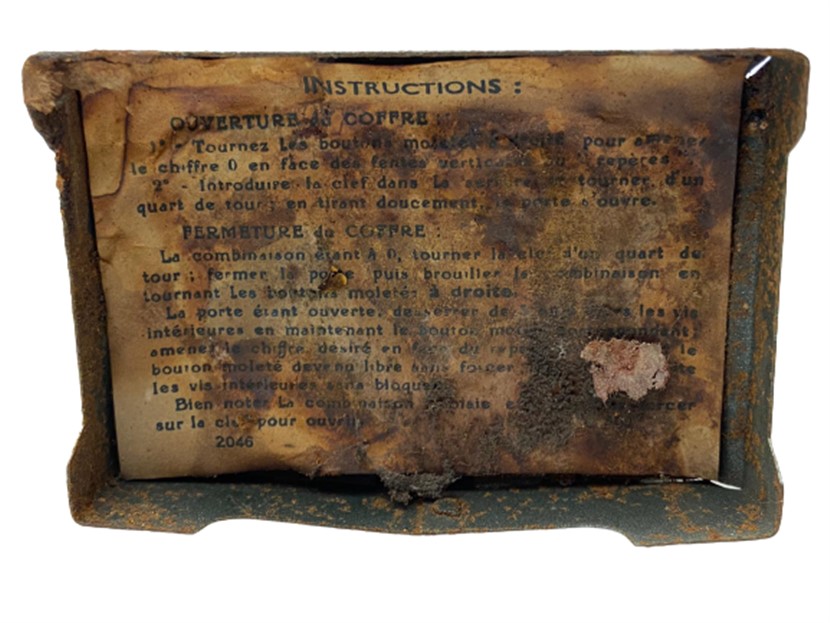 INSTRUCTIONS :
OUVERTURE du COFFRE :
1° - Tournez les boutons moletés à droite pour amener
le chiffre 0 en face des fentes verticales ou repères.
2° - Introduire la clef dans la serrure et tourner d'un
quart de tour ; en tirant doucement, la porte s'ouvre.
FERMETURE du COFFRE :
La combinaison étant à 0, tourner la clef d'un quart de
tour ; fermer la porte puis brouiller la combinaison en
tournant les boutons moletés à droite.
La porte étant ouverte, desserrer de les vis
intérieures en maintenant le bouton moleté correspondant;
amener le chiffre désiré en face du repère le
bouton moleté devenu libre sans forcer
les vis intérieures sans bloquer
Bien noter la combinaison forcer
sur la clef pour ouvrir.
2046